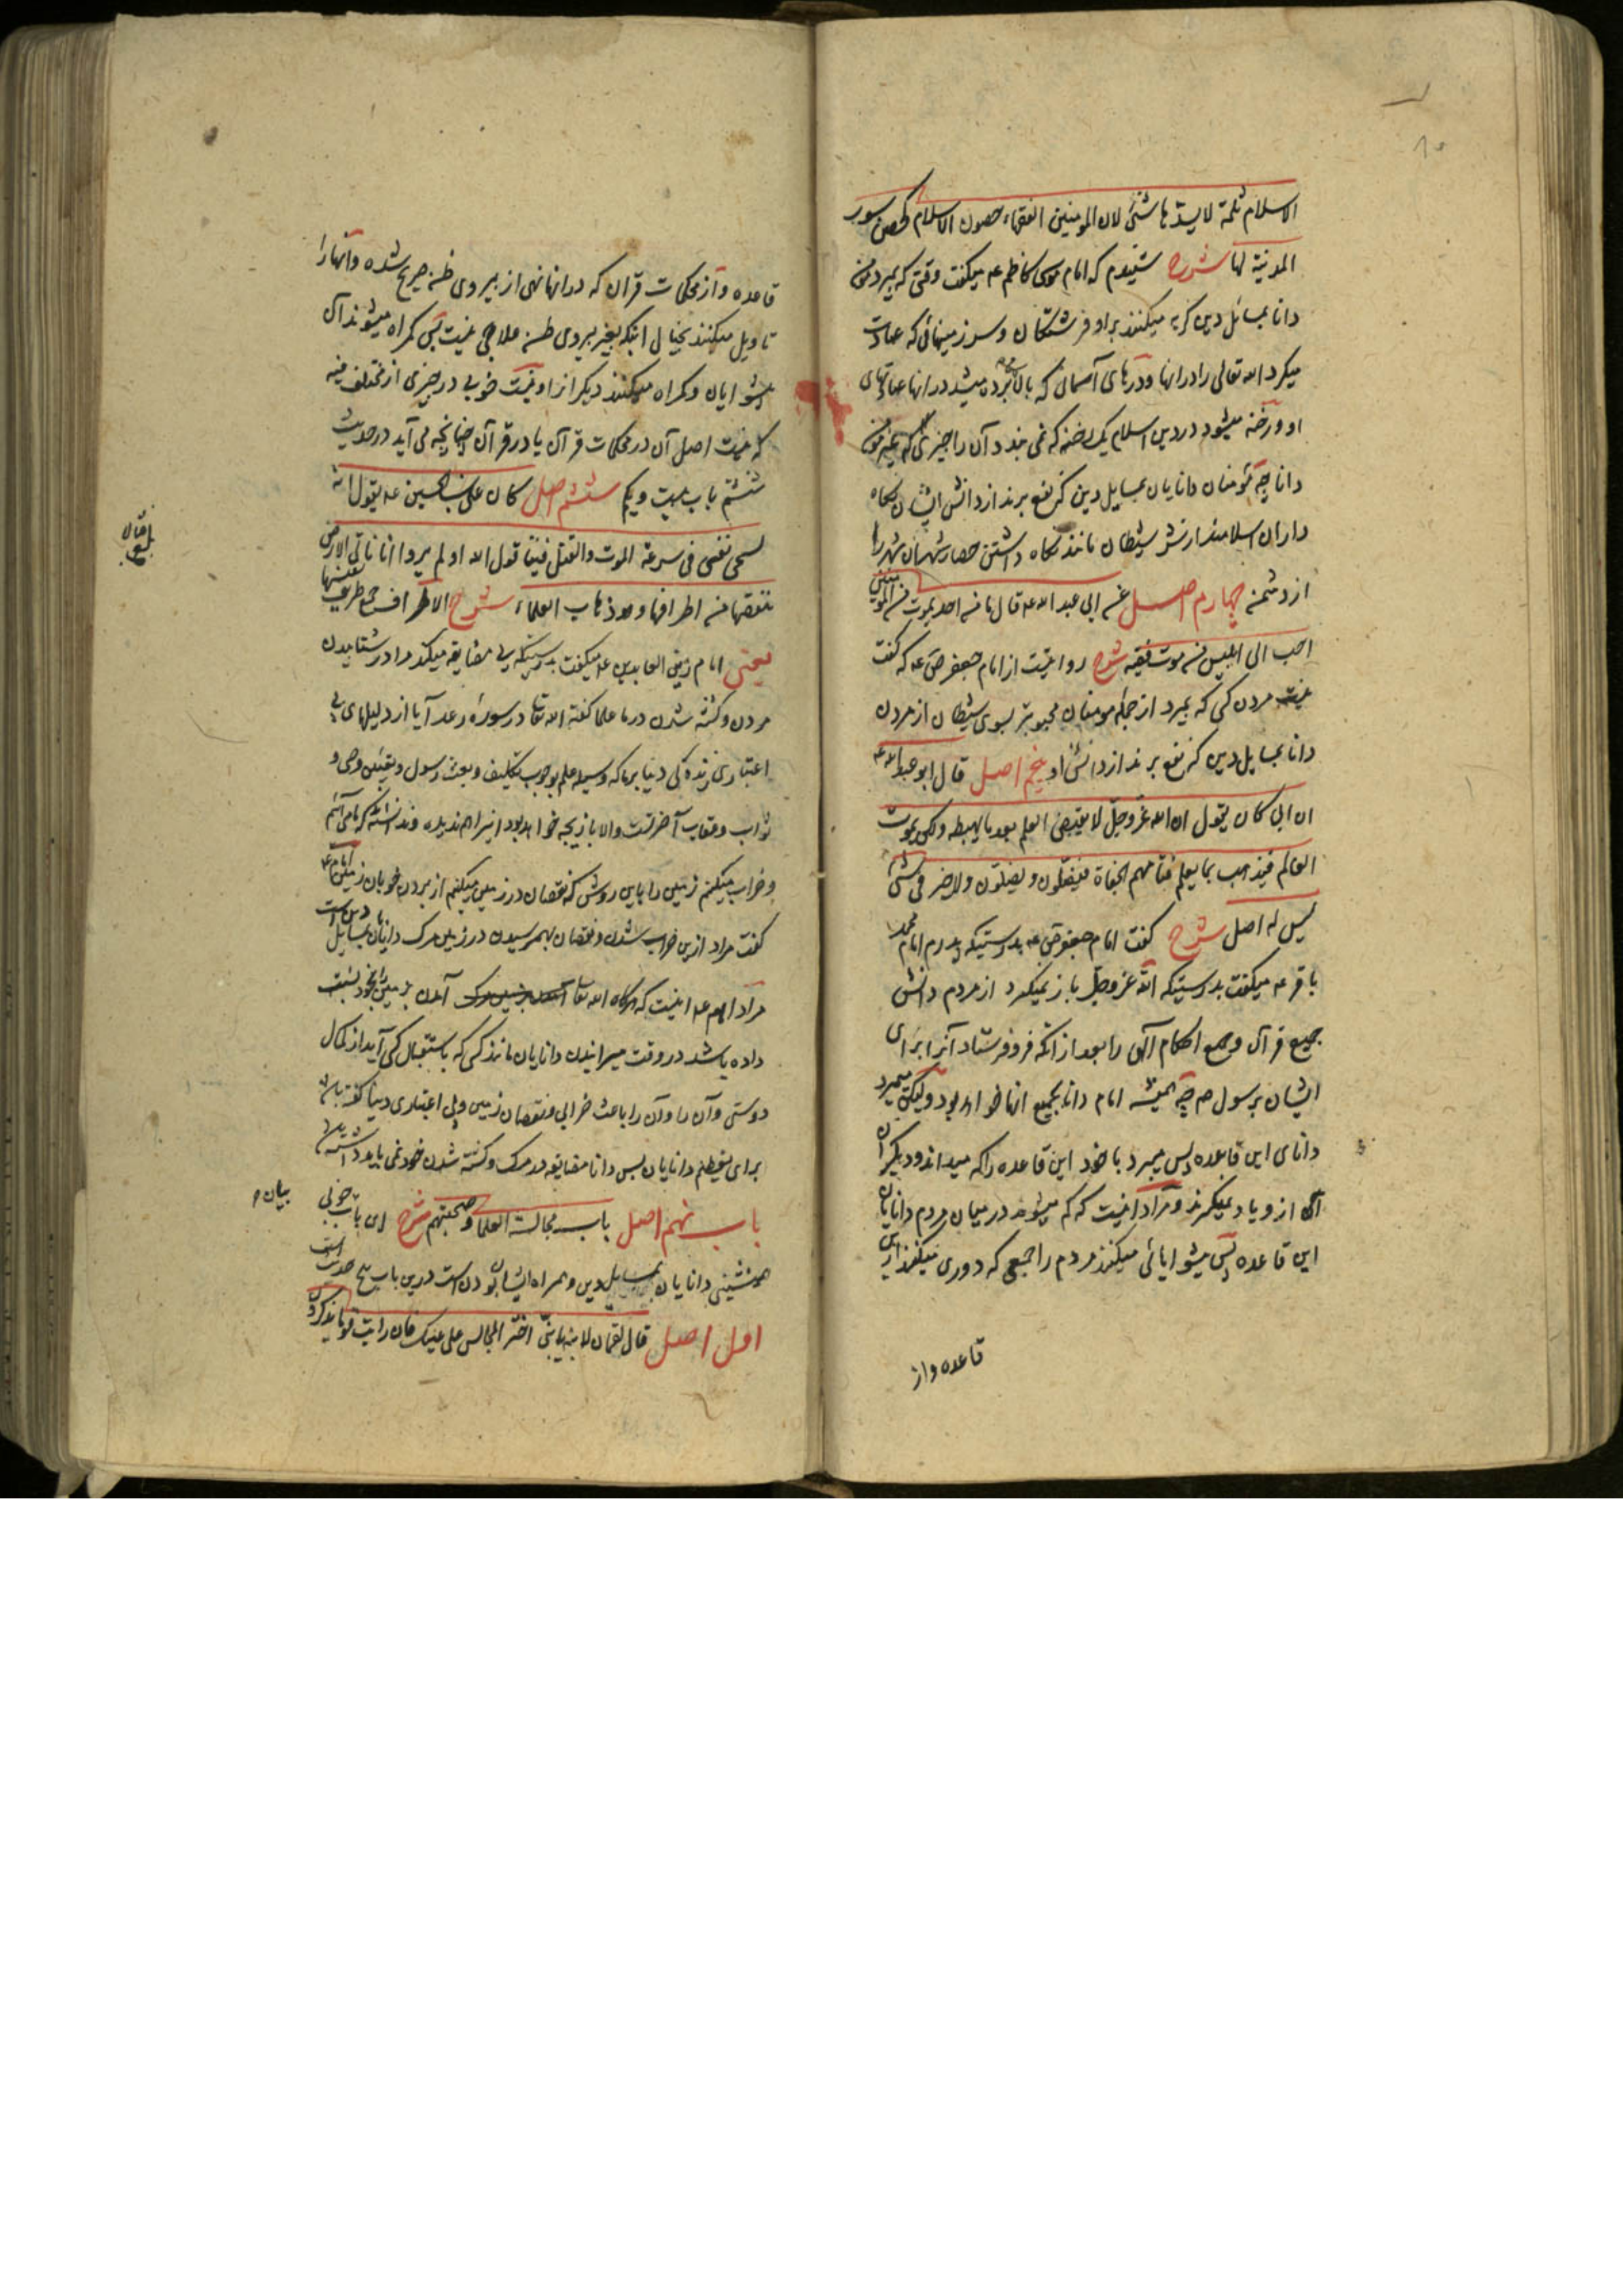 الاسلام ثلمة لا یسدّها شئ لان المومنین الفقهاء حصون الاسلام کحصن سور
المدینة لها شرح شنیدم که امام موسی کاظم عه میگفت وقتی که بمیرد مومن
دانا بمسائل دین گریه میکنند براو فرشتگان و سرزمینهائی که عبادت
میکرد الله تعالی را در انها و درهای آسمان که بالا برده میشد در انها عملهای
او و رخنه میشود در دین اسلام یک رخنه که نمی بندد آن را چیزی
دانا چه مومنان دانایان بمسایل دین که نفع برند از دانش ایشان نگاه
داران اسلامند از شر شیطان مانند نگاه داشتن حصار شهران شهر را
از دشمن چهارم اصل عن ابی عبد الله عه قال ما من احد یموت من المومنین
احب الی ابلیس من موت فقیه شرح روایتست از امام جعفر ص عه که گفت
نیست مردن کسی که بمیرد از جمله مومنان محبوبتر بسوی شیطان از مردن
دانا بمسایل دین که نفع برند از دانش او پنجم اصل قال ابو عبد الله عه
ان ابی کان یقول ان الله عزوجل لا یقبض العلم بعد ما یهبطه ولکن یموت
العالم فیذهب بما یعلم فتامهم الجفاة فیضلّون و یضلّون ولا خیر فی شئ
لیس له اصل شرح گفت امام جعفر ص عه بدرستیکه پدرم امام محمد
باقر عه میگفت بدرستیکه الله عزوجل باز نمیگیرد از مردم دانش
جمیع قرآن و جمیع احکام آلهی را بعد از انکه فرو فرستاد آنرا برای
ایشان بر رسول ص چه همیشه امام دانا بجمیع انها خواهد بود ولیکن میمیرد
دانای این قاعده پس میبرد با خود این قاعده را که میداند و دیگران
آن از و یاد نمیگیرند و مراد اینست که کم میشوند در میان مردم دانایان
این قاعده پس پیشوایائی میکنند مردم را جمعی که دوری میکنند از این
قاعده و از
قاعده و از محکمات قران که در انها نهی از پیروی ظن صریح شده و انها را
تاویل میکنند بخیال اینکه بغیر پیروی ظن علاجی نیست پس گمراه میشوند آن
پیشوایان و گمراه میکنند دیگرانرا و نیست خوبی در چیزی از مختلف فیه
که نیست اصل آن در محکمات قرآن یا در قرآن چنانچه می آید در حدیث
ششم باب بیست و یکم ششم اصل کان علی بن الحسین عه یقول انه
یسخی نفسی فی سرعة الموت والقتل فینا قول الله اولم یروا انا ناتی الارض
ننقصها من اطرافها و هو ذهاب العلماء شرح الاطراف جمع طرف
یعنی امام زین العابدین عه میگفت بدرستیکه بی مضایقه میکند مرا در شتابیدن
مردن و کشته شدن در ما علما گفته الله تعا در سورهٔ رعد آیا از دلیلهای بی
اعتباری زنده کی دنیا بر ما که وسیله علم بوجوب تکلیف و بعث رسول و تعیین وصی و
ثواب و عقاب آخرتست والا بازیچه خواهد بود اینرا هم ندیده و ندانسته که ما می آئیم
و خراب میکنیم زمین را باین روش که نقصان در زمین میکنیم از بردن خوبان زمین امام عه
گفت مراد ازین خراب شدن و نقصان بهم رسیدن در زمین مرگ دانایان بمسایل دین است
مراد امام عه اینست که هرگاه الله تعا آمدن بزمین را بخود نسبت
داده باشد در وقت میرانیدن دانایان مانند کسی که باستقبال کسی آید از کمال
دوستی و آن را باعث خرابی و نقصان زمین و بی اعتباری دنیا گفته باشد
برای تعظیم دانایان پس دانا مضایقه در مرگ و کشته شدن خود نمی باید داشته باشد
باب نهم اصل باب مجالسة العلما و صحبتهم شرح این باب خوبی
بیان
همنشینی دانایان بمسایل دین و همراه ایشان بودن است درین باب پنج حدیث است
اول اصل قال لقمان لابنه یا بنیّ اختر المجالس علی عینک فان رایت قوما یذکرون